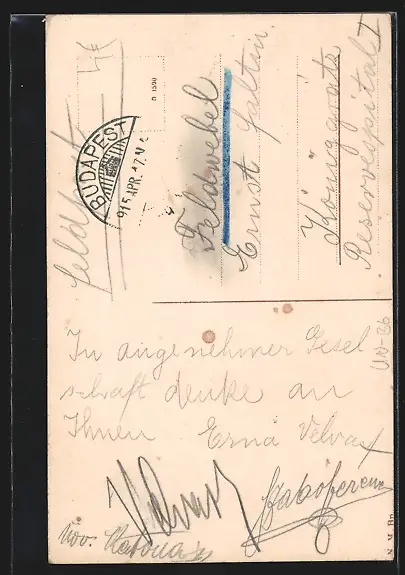 Feldpost
n 1550
BUDAPEST
915 APR. 17.
Feldwebel
Ernst Faltin
Königgrätz
Reservespital I
In angenehmer Gesel
schaft denke an
Ihnen Erna Velvar
Szabó Ferenc
N. M. Bp.